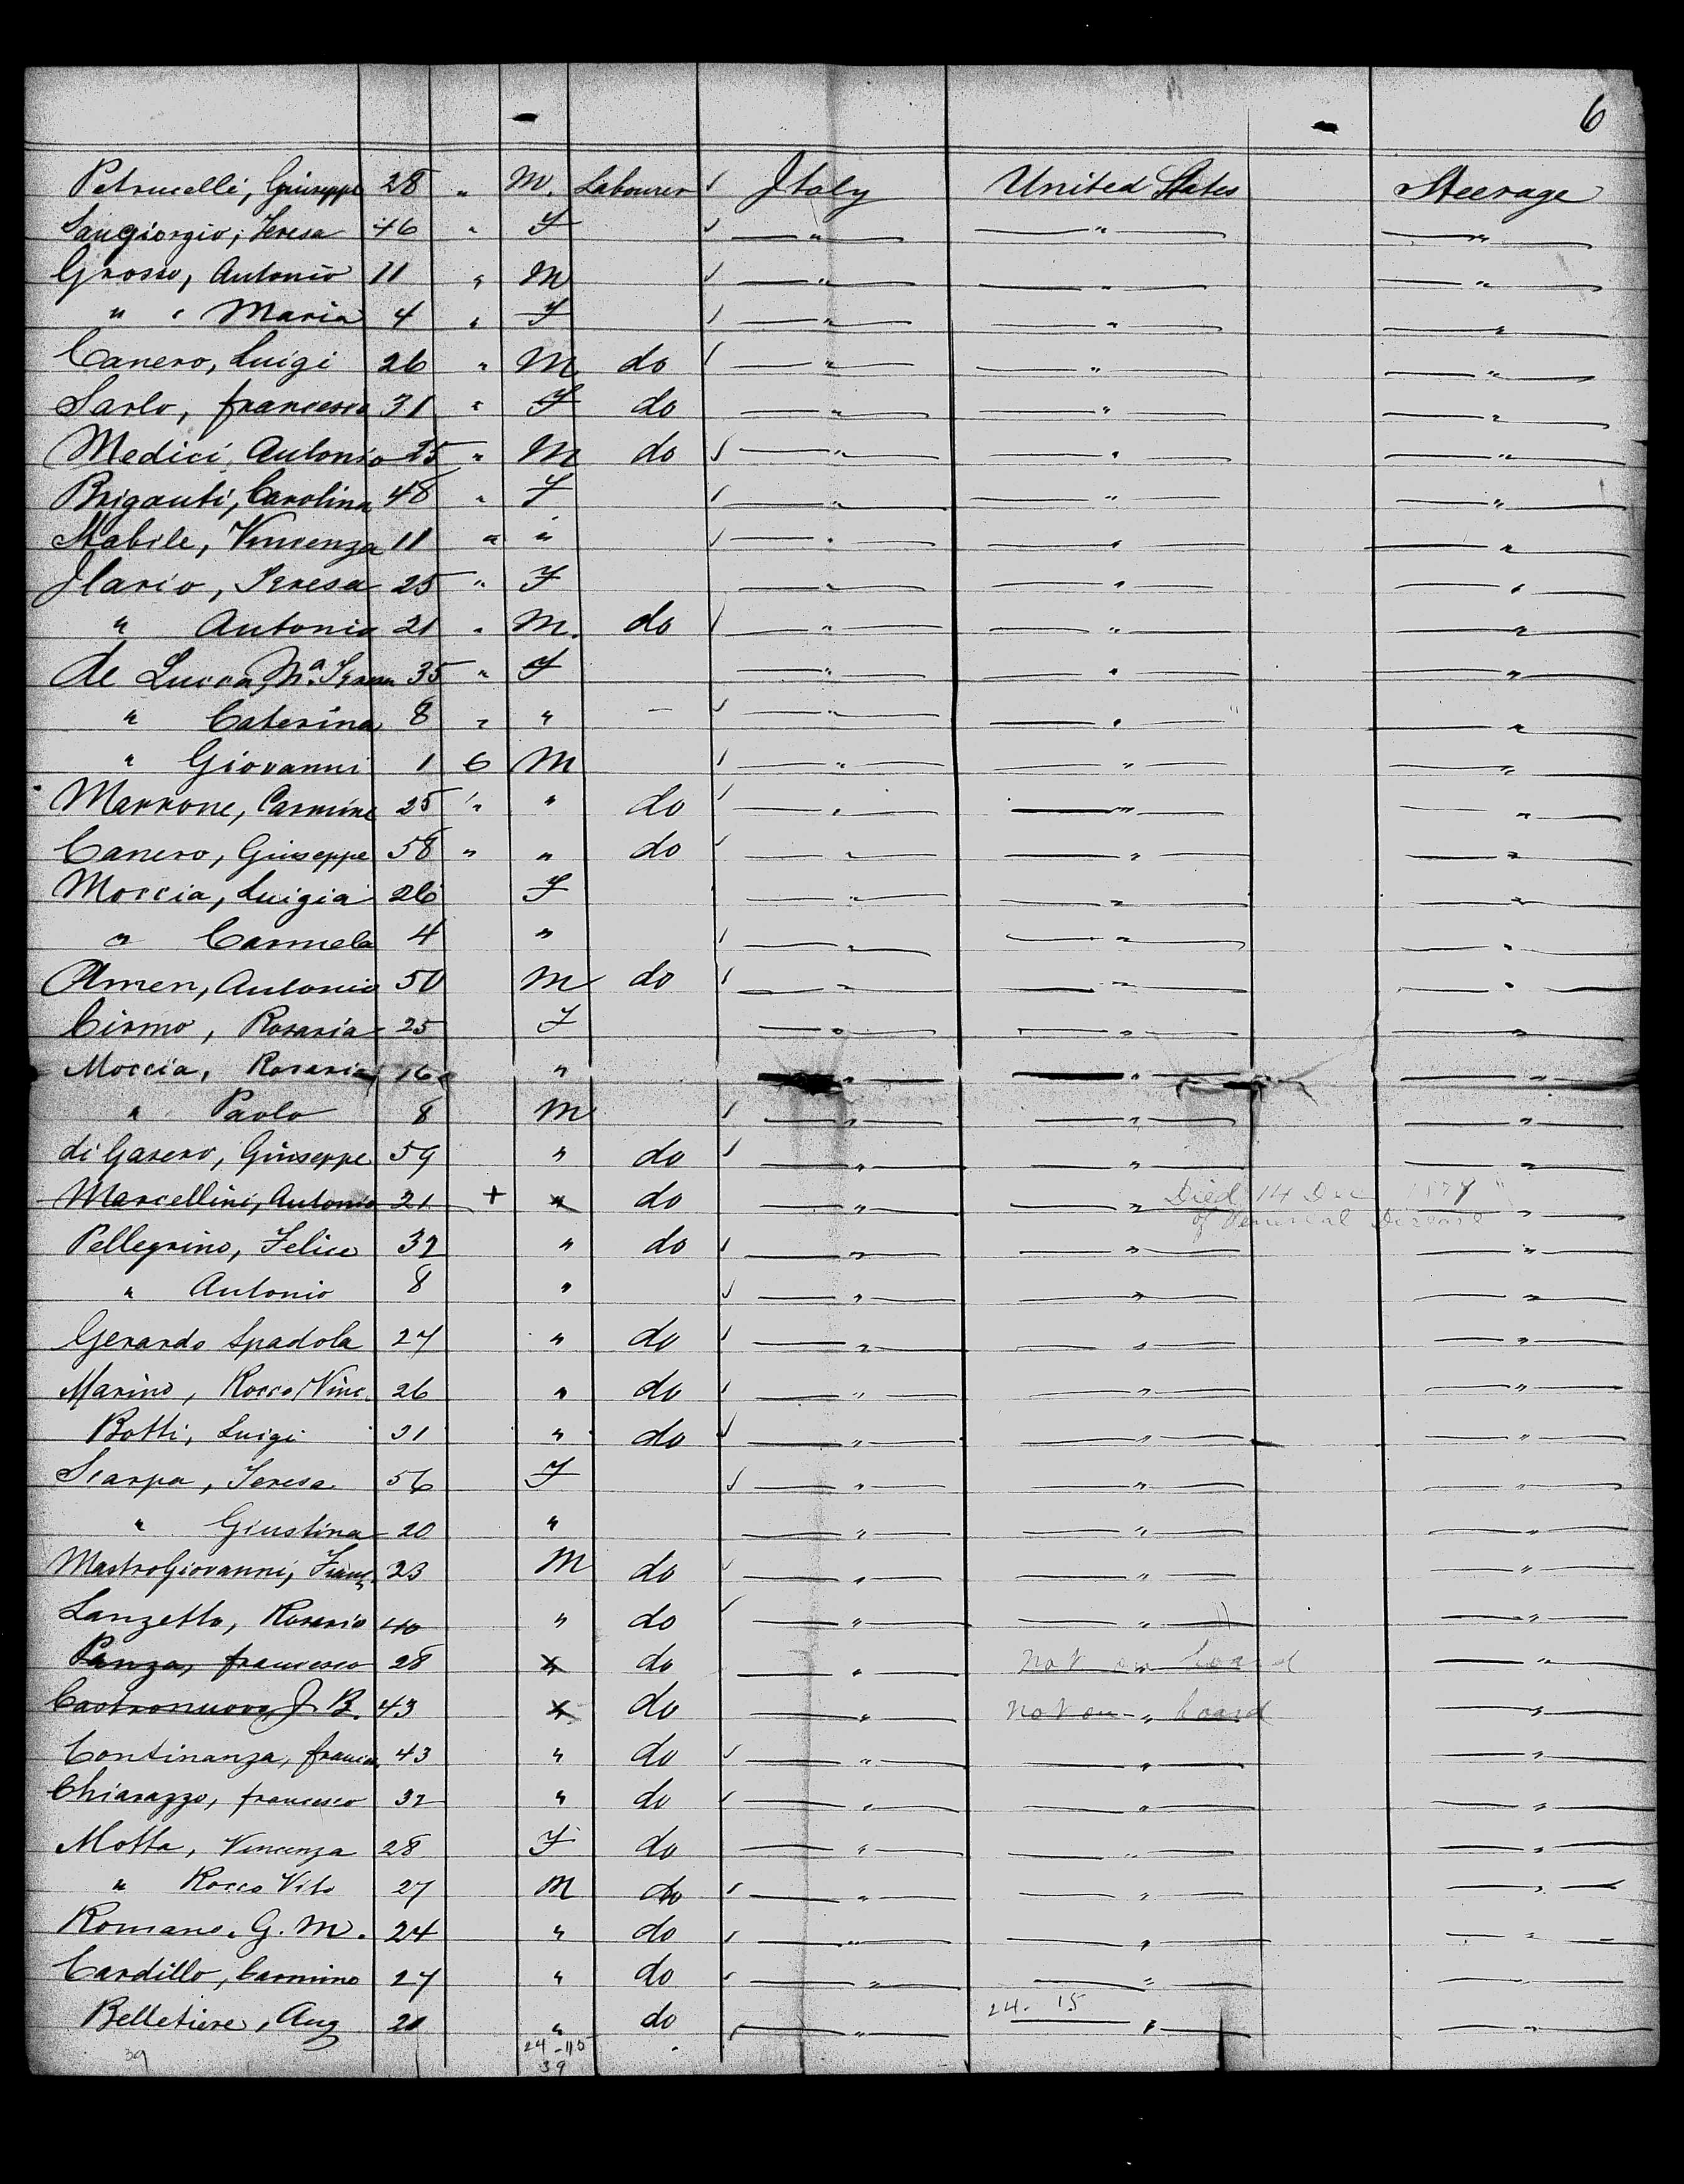 6
Petrucelli, Giuseppe 28 " M. Labourer ✓ Italy United States Steerage
Sangiorgio, Teresa 46 " F ✓ " " "
Grosso, Antonio 11 " M ✓ " " "
" " Maria 4 " F ✓ " " "
Canero, Luigi 26 " M do ✓ " " "
Sarlo, francesca 31 " F do " " "
Medici, Antonio 25 " M do ✓ " " "
Briganti, Carolina 48 " F ✓ " " "
Mabile, Vincenza 11 " " ✓ " " "
Ilario, Teresa 25 " F " " "
" Antonio 21 " M. do ✓ " " "
de Lucca, Mª Teresa 35 " F " " "
" Caterina 8 " " ✓ " " "
" Giovanni 1 6 M ✓ " " "
Marrone, Carmine 25 " " do ✓ " " "
Canero, Giuseppe 58 " " do ✓ " " "
Moccia, Luigia 26 F " " "
" Carmela 4 " ✓ " " "
Amen, Antonio 50 M do ✓ " " "
Cirmo, Rosaria 25 F " " "
Moccia, Rosaria 16 " " " "
" Paolo 8 M ✓ " " "
di Gasero, Giuseppe 59 " do ✓ " " "
Marcellini, Antonio 21 + " do " " Died 14 Dec "
of Disease
Pellegrino, Felice 32 " do ✓ " " "
" Antonio 8 " ✓ " " "
Gerardo Spadola 27 " do ✓ " " "
Marino, Rocco Vinc. 26 " do ✓ " " "
Botti, Luigi 31 " do ✓ " " "
Scarpa, Teresa 56 F ✓ " " "
" Giustina 20 " " " "
MastroGiovanni, Franc. 23 M do ✓ " " "
Lanzetto, Rosario 40 " do ✓ " " "
Panza, francesco 28 x do " not on board "
Castronuovo, J B. 43 x do " not on board "
Continanza, frances. 43 " do ✓ " " "
Chiarazzo, francesco 32 " do ✓ " " "
Motta, Vincenza 28 F do " " "
" Rocco Vito 27 M do ✓ " " "
Romano. G. M. 24 " do ✓ " " "
Cardillo, Carmino 27 " do ✓ " " "
24. 15
Belletiere, Aug 21 " do ✓ " " "
39 24-115
39